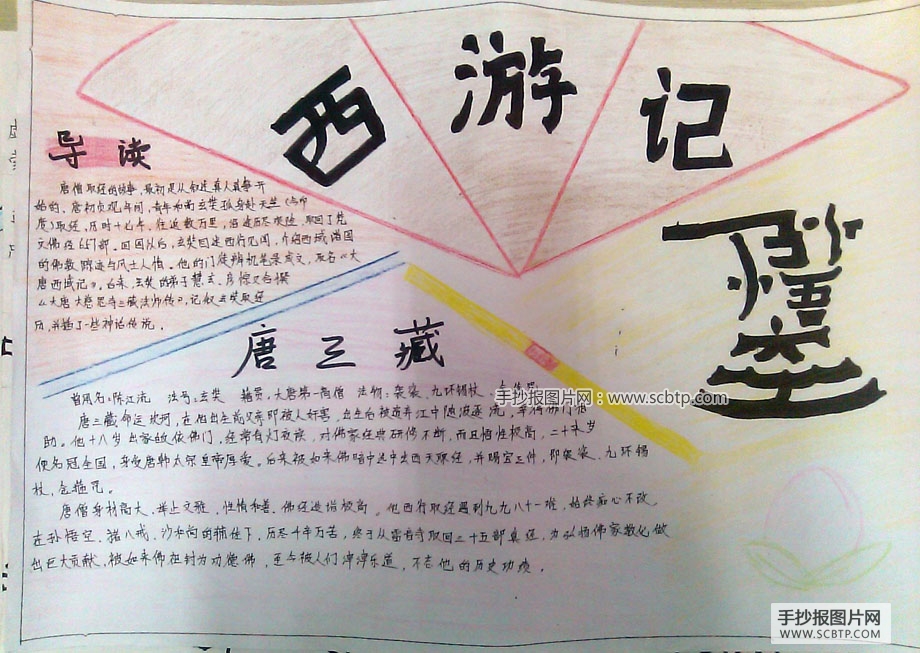 西游记
导读
唐僧取经的故事,最初是从
始的。唐初贞观年间,青年和尚玄奘孤身赴天竺(今印
度)取经,历时十七年,往返数万里,沿途历尽艰险,取回了梵
文佛经657部,回国以后,玄奘口述西行见闻,介绍西域诸国
的佛教踪迹与风土人情。他的门徒辨机笔录成文,取名《大
唐西域记》。后来,玄奘的弟子慧立、彦悰又合撰
《大唐大慈恩寺三藏法师传》,记叙玄奘取经
历,并插了一些神话传说。
孙悟空
唐三藏
名:陈江流 法号:玄奘 籍贯:大唐第一高僧 法物:袈裟、九环锡杖、
唐三藏命运坎坷,在他出生前父亲即被人奸害,出生后被遗弃江中随波逐流,幸得佛门相
助。他十八岁出家皈依佛门,经常有灯夜族,对佛家经典研修不断,而且悟性极高,二十来岁
便名冠全国,身受唐朝太宗皇帝厚爱。后来被如来佛暗中选中去西天取经,并赐宝三件,即袈裟、九环锡
杖、金箍咒。
唐僧身材高大、举止文雅、性情和善、佛经造诣极高。他西行取经遇到九九八十一难,始终痴心不改,
在孙悟空、猪八戒、沙和尚的辅佐下,历尽千辛万苦,终于从雷音寺取回三十五部真经,为弘扬佛家教化做
出巨大贡献,被如来佛祖封为功德佛,至今被人们津津乐道,不忘他的历史功绩。
手抄报图片网:www.scbtp.com
手抄报图片网
WWW.SCBTP.COM